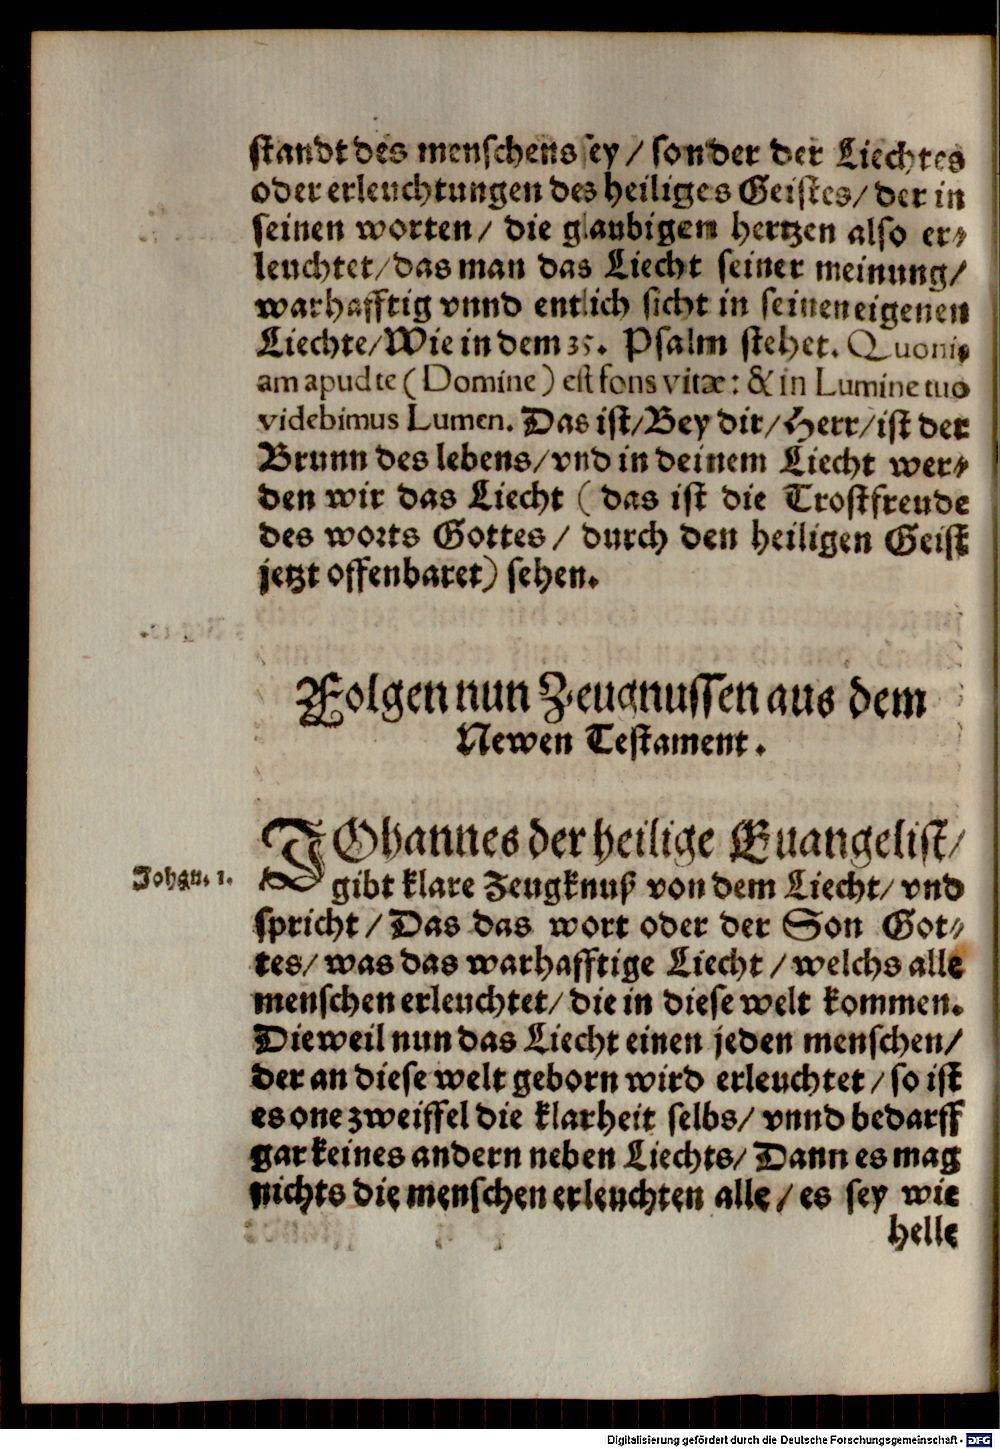 standt des menschens sey / sonder der Liechtes
oder erleuchtungen des heiliges Geistes / der in
seinen worten / die glaubigen hertzen also er⸗
leuchtet / das man das Liecht seiner meinung /
warhafftig vnnd entlich sicht in seinen eigenen
Liechte / Wie in dem 35. Psalm stehet. Quoni⸗
am apud te ( Domine ) est fons vitæ : & in Lumine tuo
videbimus Lumen. Das ist / Bey dir / Herr / ist der
Brunn des lebens / vnd in deinem Liecht wer⸗
den wir das Liecht ( das ist die Trostfreude
des worts Gottes / durch den heiligen Geist
jetzt offenbaret) sehen.
Folgen nun Zeugnussen aus dem
Newen Testament.
JOhannes der heilige Euangelist /
Johan. 1.
gibt klare Zeugknuß von dem Liecht / vnd
spricht / Das das wort oder der Son Got⸗
tes / was das warhafftige Liecht / welchs alle
menschen erleuchtet / die in diese welt kommen.
Dieweil nun das Liecht einen jeden menschen /
der an diese welt geborn wird erleuchtet / so ist
es one zweiffel die klarheit selbs / vnnd bedarff
gar keines andern neben Liechts / Dann es mag
nichts die menschen erleuchten alle / es sey wie
helle
Digitalisierung gefördert durch die Deutsche Forschungsgemeinschaft - DFG